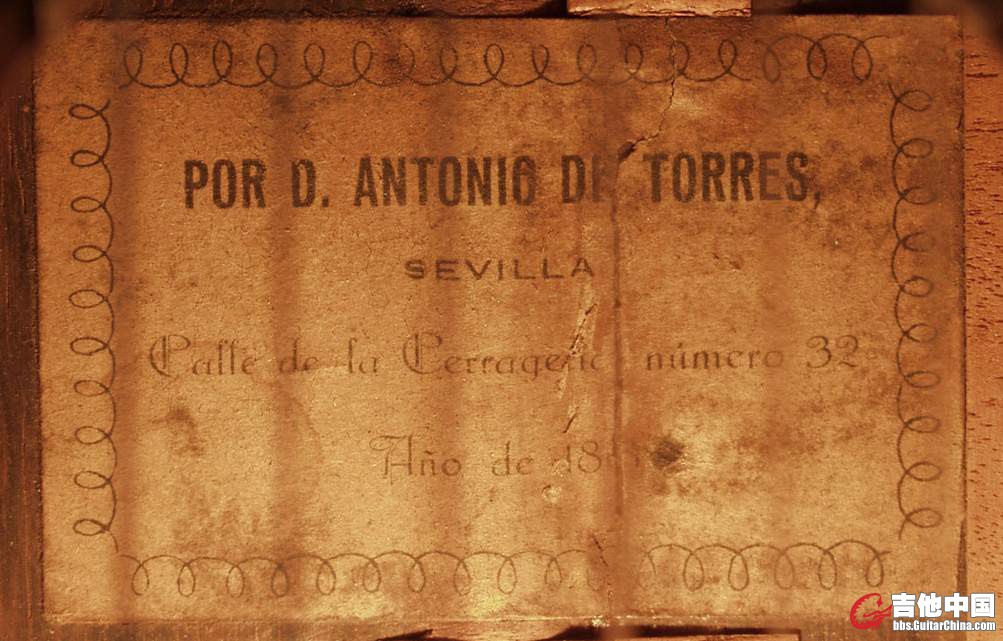 POR D. ANTONIO DE TORRES,
SEVILLA
Calle de la Cerrageria número 32
Año de 18
吉他中国
bbs.GuitarChina.com